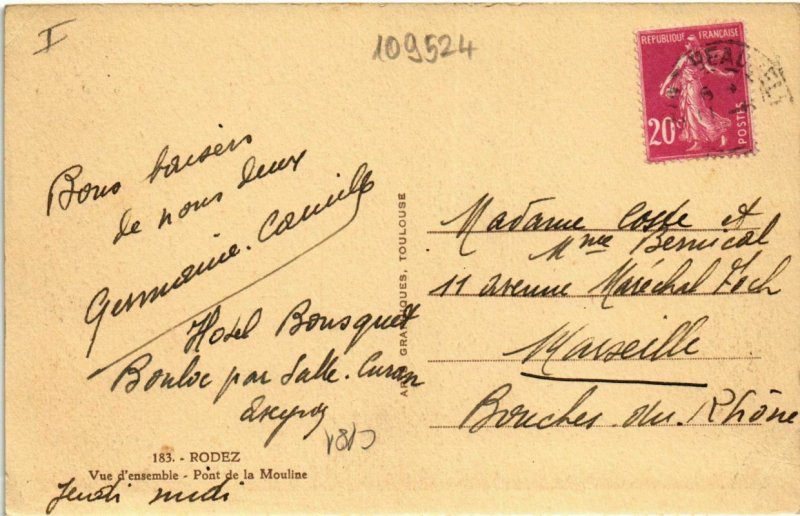 I
109524
REPUBLIQUE FRANÇAISE
20c
POSTES
BEAU
Bons baisers
de nous deux
Germaine. Camille
Hotel Bousquet
Bouloc par Salle. Curan
Aveyron
ARTS GRAPHIQUES, TOULOUSE
Madame Coste et
Mme Bernical
11 avenue Maréchal Foch
Marseille
Bouches du Rhône
183. - RODEZ
Vue d'ensemble - Pont de la Mouline
Jeudi midi